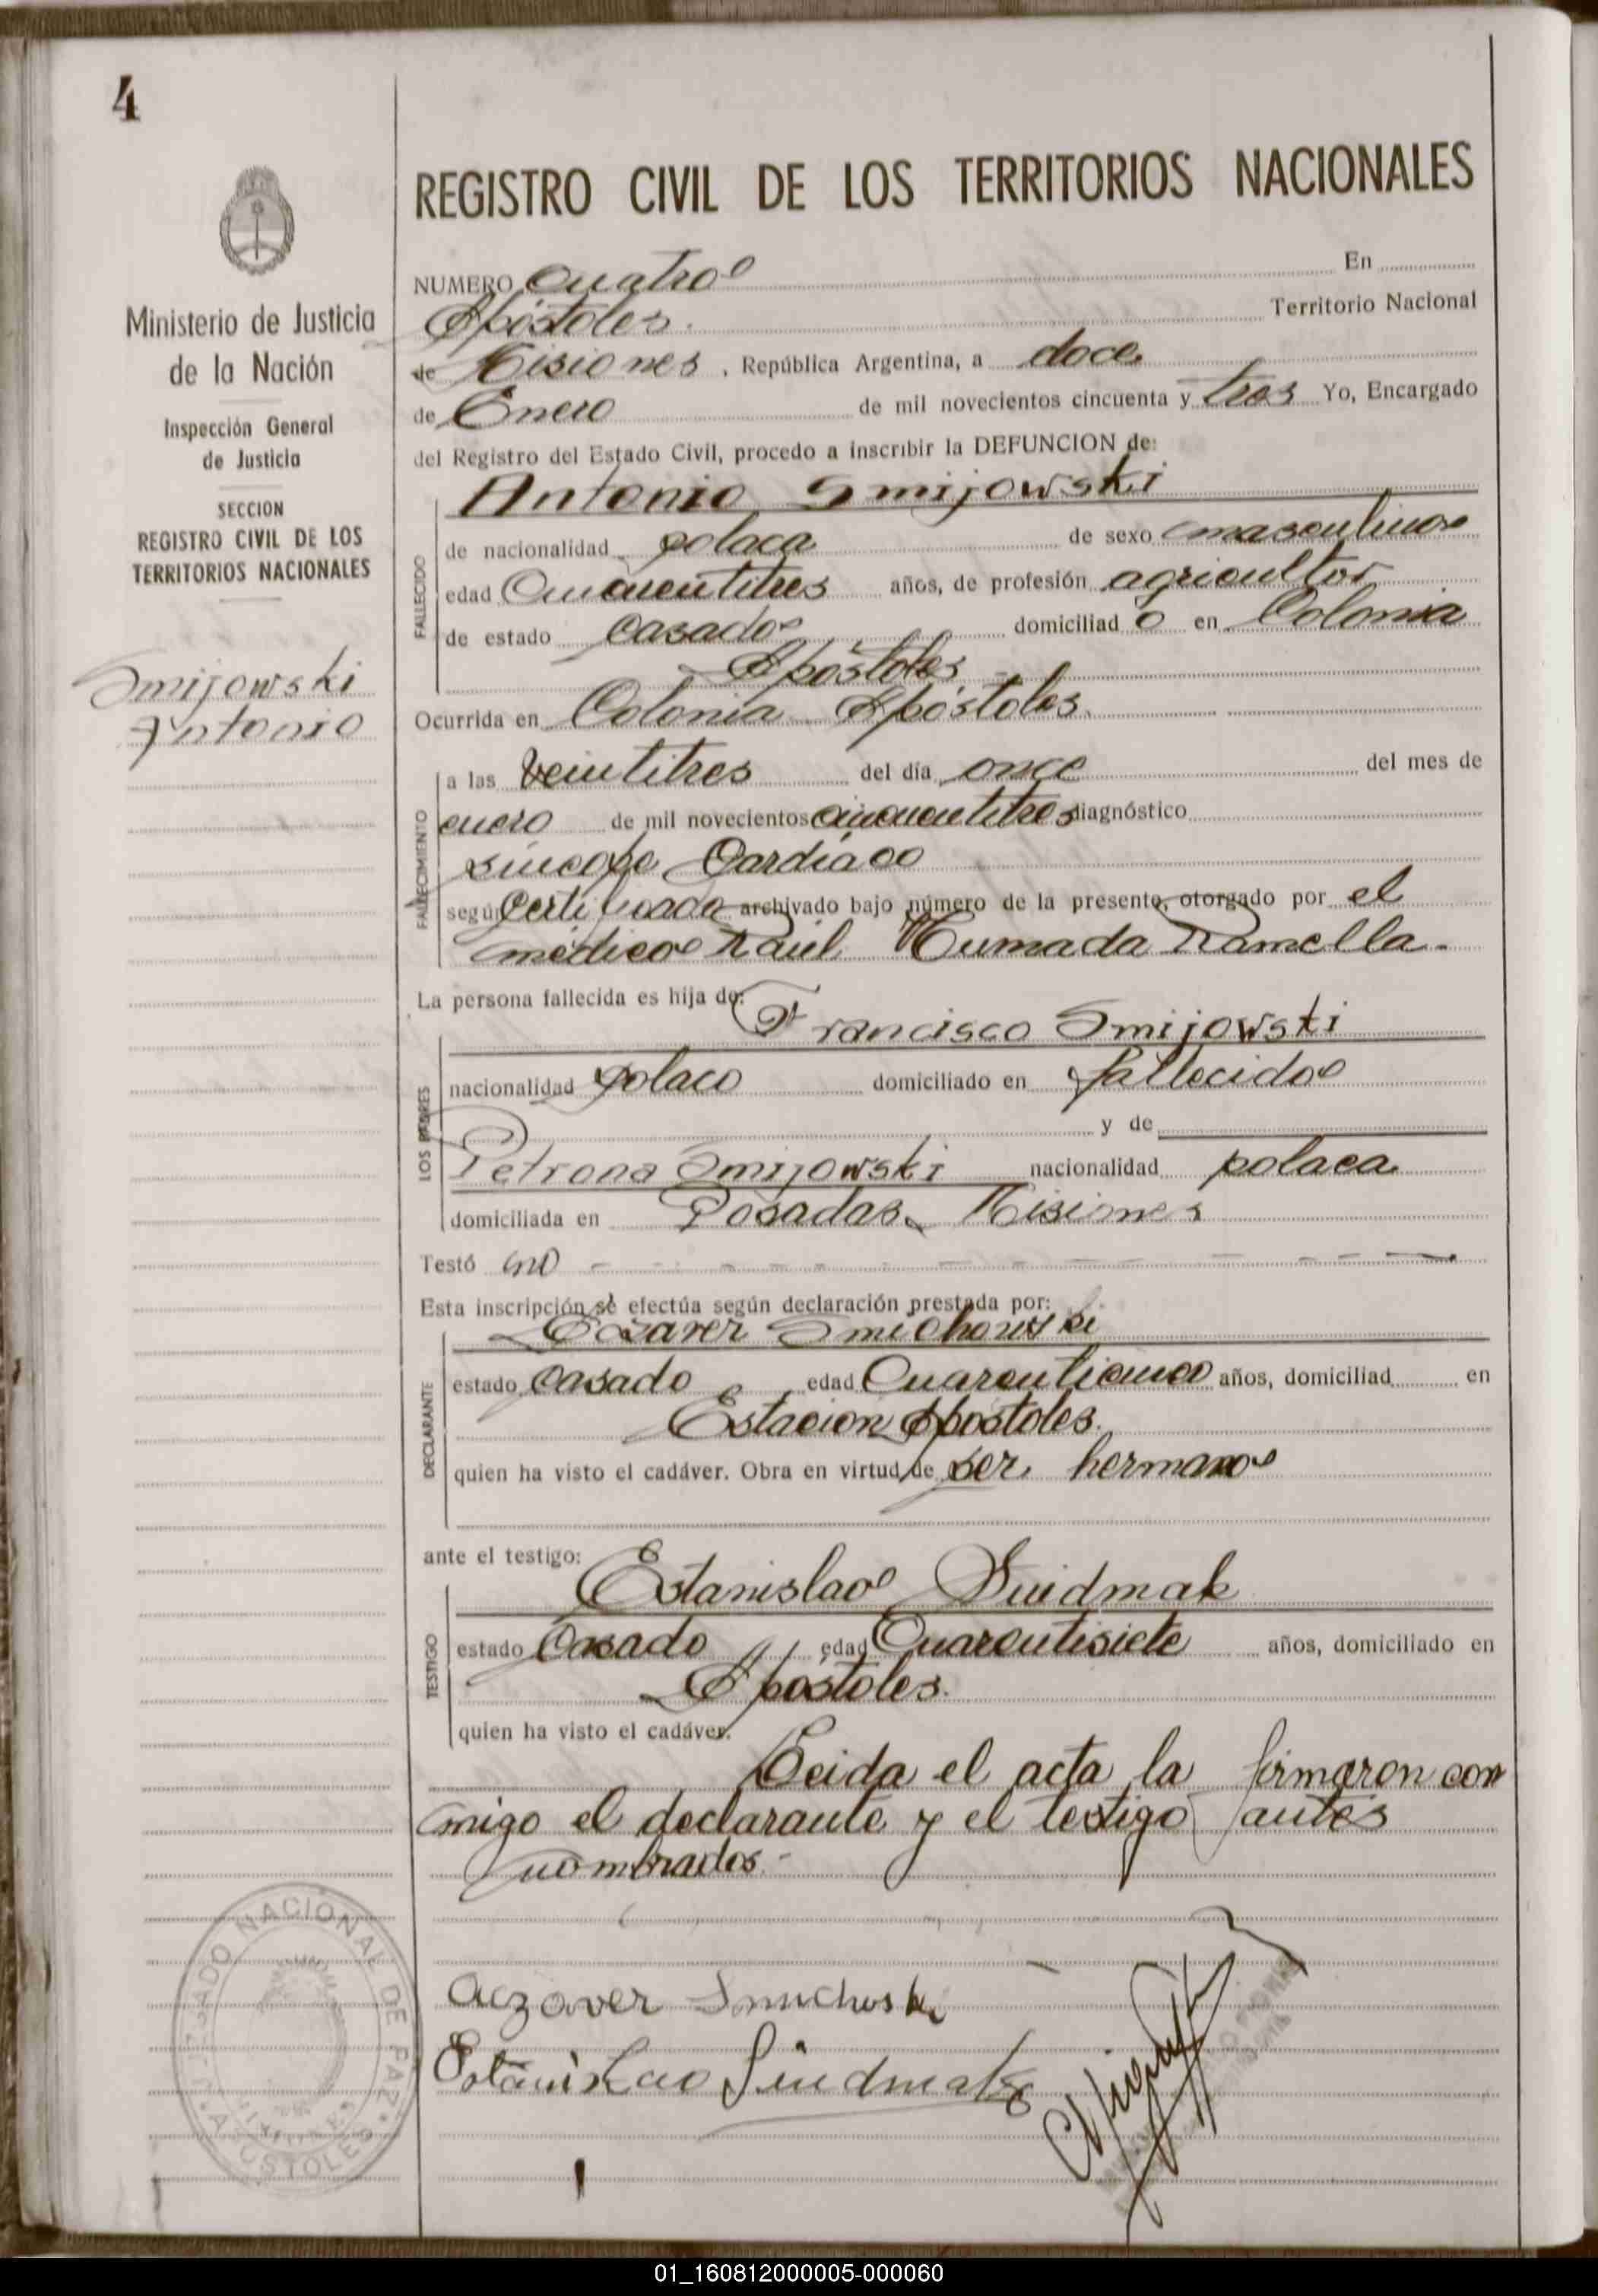 4
REGISTRO CIVIL DE LOS TERRITORIOS NACIONALES
Ministerio de Justicia
de la Nación
Inspección General
de Justicia
SECCION
REGISTRO CIVIL DE LOS
TERRITORIOS NACIONALES
Smijowski
Antonio
NUMERO Cuatro En
Apóstoles. Territorio Nacional
de Misiones, República Argentina, a doce
de Enero de mil novecientos cincuenta y tres Yo, Encargado
del Registro del Estado Civil, procedo a inscribir la DEFUNCION de:
Antonio Smijowski
FALLECIDO
de nacionalidad polaca de sexo masculino
edad Cincuentitres años, de profesión agricultor
de estado casado domiciliad o en Colonia
Apóstoles
Ocurrida en Colonia Apóstoles.
FALLECIMIENTO
a las veintitres del día once del mes de
enero de mil novecientos cincuentitres diagnóstico
síncope Cardíaco
según Certificado archivado bajo número de la presente, otorgado por el
médico Raúl Humada Ramella.
La persona fallecida es hija de:
Francisco Smijowski
LOS PADRES
nacionalidad polaco domiciliado en fallecido
y de
Petrona Smijowski nacionalidad polaca
domiciliada en Posadas, Misiones
Testó no
Esta inscripción se efectúa según declaración prestada por:
Smichowski
DECLARANTE
estado casado edad Cuarenticinco años, domiciliad en
Estación Apóstoles.
quien ha visto el cadáver. Obra en virtud de ser hermano
ante el testigo:
Estanislao Suidmak
TESTIGO
estado Casado edad Cuarentisiete años, domiciliado en
Apóstoles.
quien ha visto el cadáver.
Leida el acta la firmaron con
migo el declarante y el testigo antes
nombrados.-
JUZGADO NACIONAL DE PAZ
APOSTOLES
01_160812000005-000060